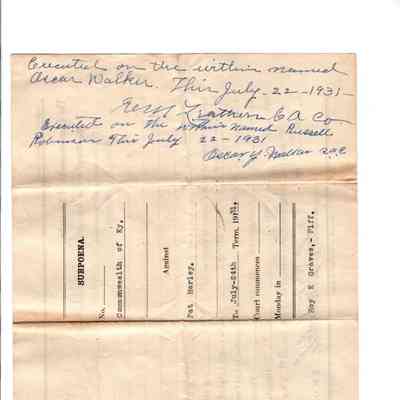 Executed on the within named
Oscar Walker. This July - 22 - 1931 -
C A Co
Executed on the within named Russell
Robinson This July 22 - 1931
Oscar Walker
SUBPOENA.
No.
Commonwealth of Ky.
Against
Pat Harley.
To July-24th Term, 19
Court commences
Monday in
Roy E Graves,- Plff.